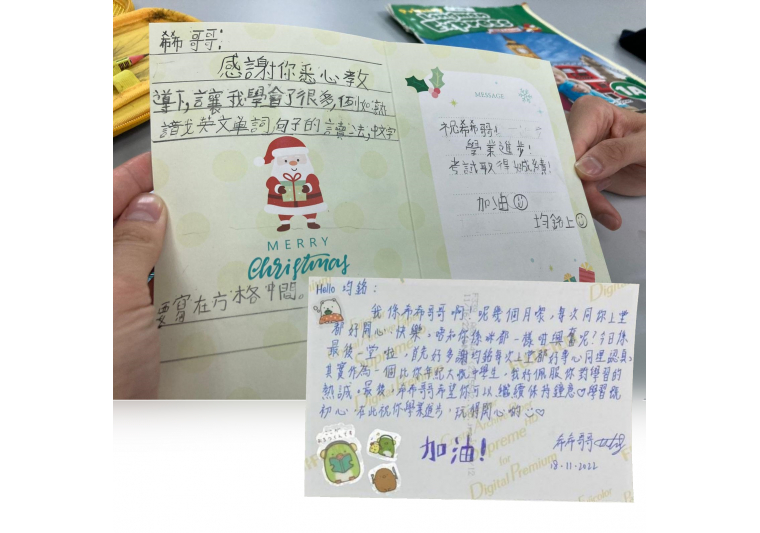 希希哥哥:
感謝你悉心教
導下,讓我學會了很多,例如說
諳戈英文單詞,句子的讀法,中文字
要寫在方格中間。
MERRY
Christmas
MESSAGE
祝希希哥!
學業進步!
考試取得好成績!
加油
均鈞上
1A
Hello 均鈞:
我係希希哥哥啊!呢幾個月嚟,每次同你上堂
都好開心、快樂,唔知你係咪都一樣咁興奮呢?今日係
最後一堂啦,首先好多謝均鈞每次上堂都好專心同埋認真。
其實作為一個比你年紀大既中學生,我好佩服你對學習的
熱誠。最後,希希哥哥希望你可以繼續保持鐘意♡學習既
初心,在此祝你學業進步,玩得開心的♡
加油!
希希哥哥
18-11-2022
Supreme
for
Digital Premium